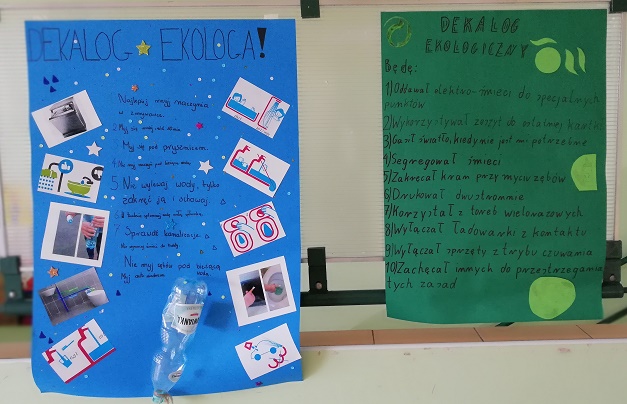 DEKALOG EKOLOGA!
Najlepiej myj naczynia
w zmywarce.
Myj się pod prysznicem.
5. Nie wylewaj wody, tylko
zakręć ją i schowaj
7. Sprawdź kanalizację
Nie myj zębów pod bieżącą
wodą
DEKALOG
EKOLOGICZNY
Będę:
1) Oddawał elektro-śmieci do specjalnych
punktów
2) Wykorzystywał zeszyt do ostatniej kartki
3) Gasił światło, kiedy nie jest mi potrzebne
4) Segregował śmieci
5) Zakręcał kran przy myciu zębów
6) Drukował dwustronnie
7) Korzystał z toreb wielorazowych
8) Wyłączał ładowarki z kontaktu
9) Wyłączał sprzęty z trybu czuwania
10) Zachęcał innych do przestrzegania
tych zasad